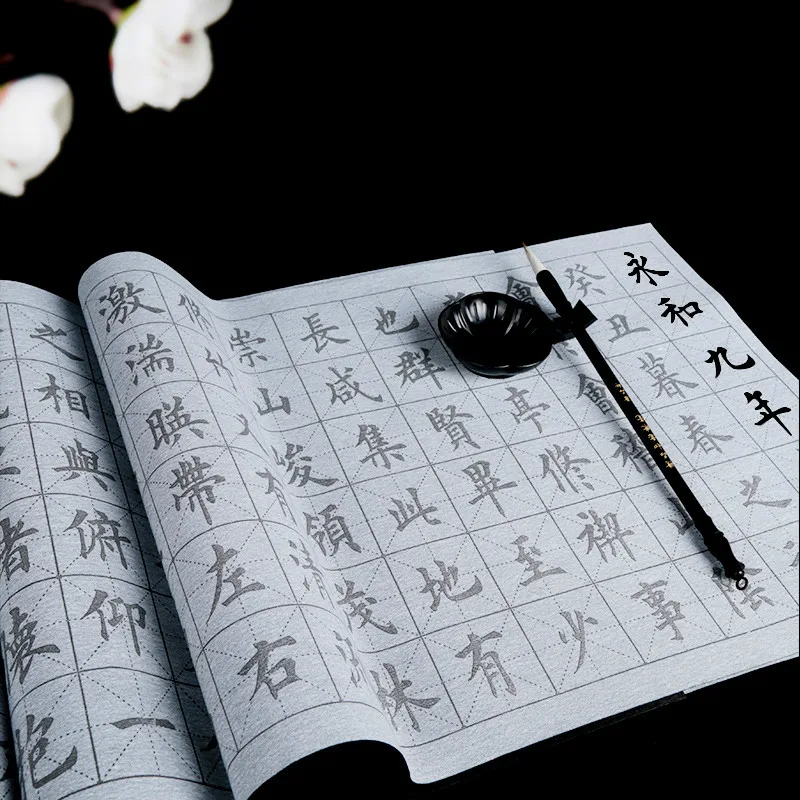 永和九年
癸丑暮春之
會會稽山陰
亭修禊事
也群賢畢至少
長咸集此地有
崇山峻領茂林
修清
激湍暎帶左右
之相與俯仰一
懷抱